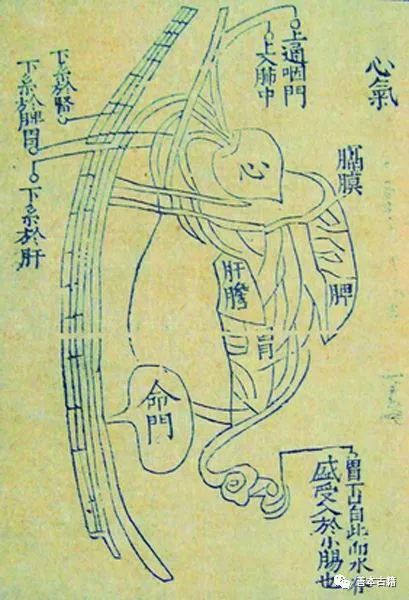 心氣
上通咽門
上入肺中
下系於腎
下系於脾胃
下系於肝
心
膈膜
脾
肝膽
胃
命門
胃下口自此而水谷
盛受入於小腸也
善本古籍